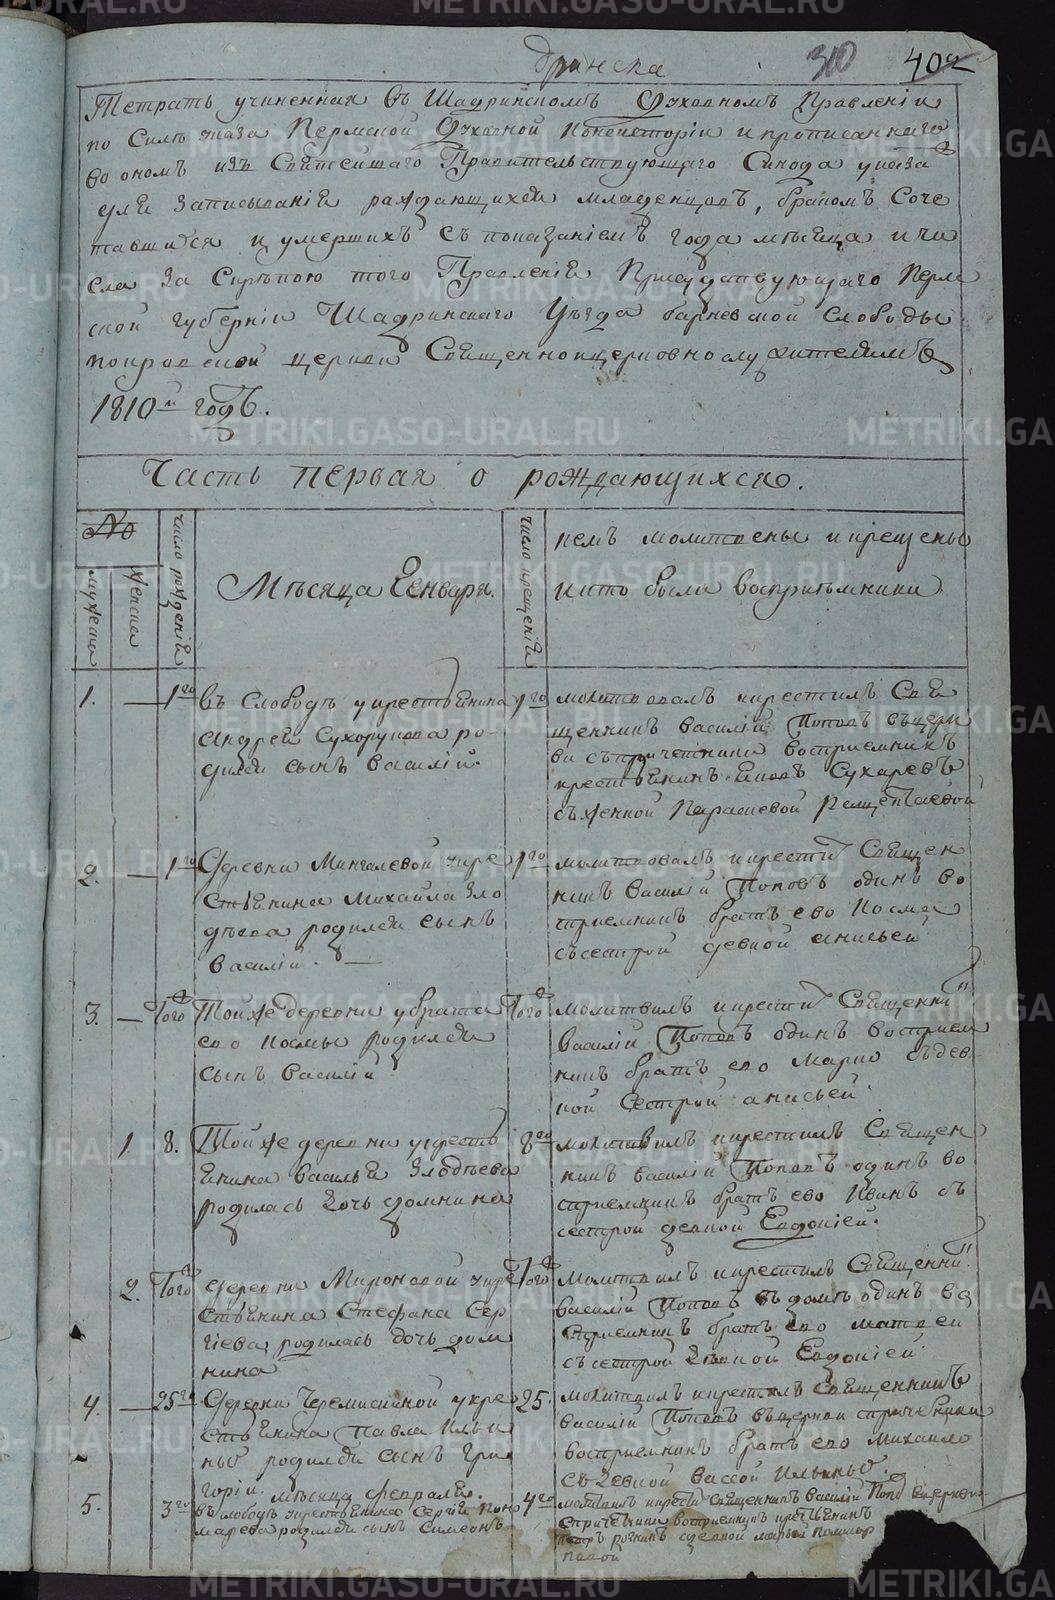 310 402
Тетрать учиненная въ Шадринскомъ Духовномъ Правленіи
по Силѣ указа Пермской Духовной Консисторіи и прописаннаго
во ономъ изъ Святейшаго Правительствующаго Синода указа
для Записыванія раждающихся младенцовъ, бракомъ Соче
тавшихся и умершихъ съ показаніемъ года мѣсяца и чи
сла За Скрѣпою того Правленія Присудствующаго Перм
ской губерніи Шадринскаго Уѣзда барневской Слободы
покровской церкви Священноцерковнослужителямъ
1810й годъ.
Часть первая о рождающихся.
№
мужеска
женска
число рожденій
Мѣсяца Генваря.
число крещеній
кемъ молитвены и крещены
и кто были воспріемники
1. — 1го въ Слободѣ у крестьянина
Андрея Сухорукова ро-
дился сынъ Василій.
1го молитвовалъ и крестилъ Свя
щенникъ Василій Поповъ въ церк
ви съ причетники воспріемникъ
крестьянинъ Сухаревъ
съ женой
2. — 1го Деревни Мингалевой у кре
стьянина Михайла Зло
дѣева родился сынъ
Василій. —
1го молитвовалъ и крести Священ
никъ Василій Поповъ одинъ во
спріемникъ братъ его Косма
съ сестрой девкой анисьей
3. — Того Той же деревни у брата
его Космы родился
сынъ Василій
Того молитвилъ и крести Священни
Василій Поповъ одинъ воспріем
никъ братъ его Марко съ дев-
кой Сестрой анисьей
1. 8. Той же деревни у кресть
янина Василья Злодѣева
родилась дочь домнина
8го молитвилъ и крестилъ Священ
никъ Василій Поповъ одинъ во
спріемникъ братъ его Иванъ съ
сестрой девкой Евдокіей.
2. Того деревни Мироновой у кре
стьянина Стефана Сер
гіева родилась дочь дом
нина
Того Молитвилъ и крестилъ Священни
Василій Поповъ въ домѣ одинъ во
спріемникъ братъ его матвей
съ сестрой девкой Евдокіей
4. — 25го Деревни Черемисской у кре
стьянина Павла Ильи
ныхъ родился сынъ Гри
горій.
25. молитвилъ и крестилъ Священникъ
Василій Поповъ въ церкви с причетники
воспріемникъ братъ его Михайло
съ девкой Вассой Ильиныхъ
мѣсяца февраля.
5. 3го въ слободѣ у крестьянина Сергія Поно
марева родился сынъ Симеонъ
4го молитвилъ и крести Священникъ Василій Поповъ в церкви
с причетники воспріемникъ крестьянинъ
Петръ с девкой марьей